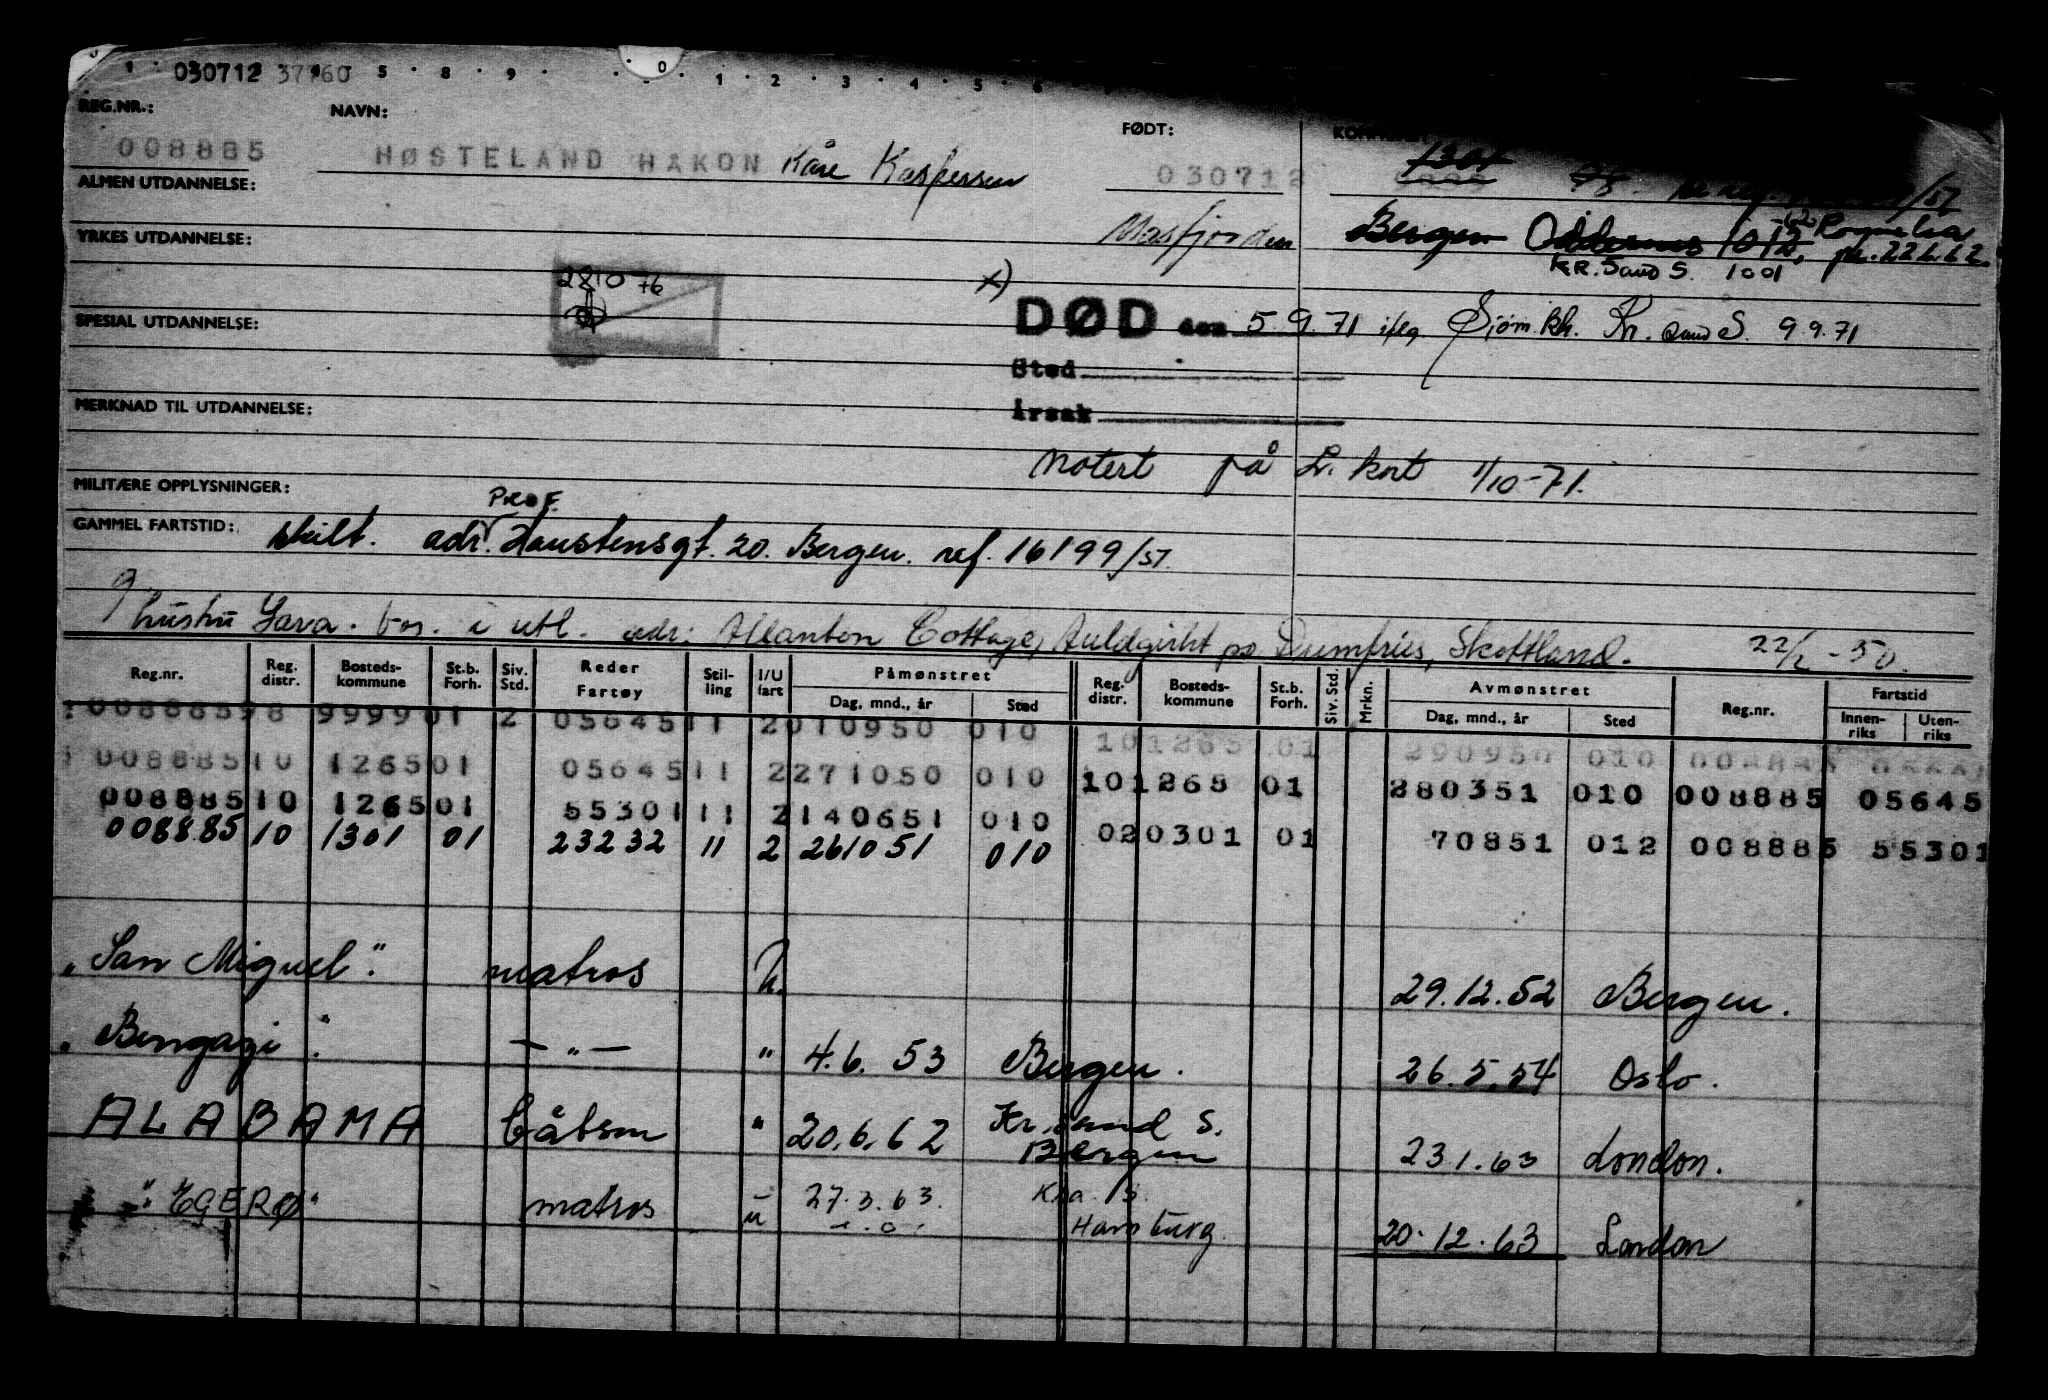 030712 37760
REG.NR.: NAVN: FØDT:
008885 HØSTELAND HAKON Kåre Kaspersen 030712 1301
ALMEN UTDANNELSE: Masfjorden Bergen Oddernes 1012, Romelia pr. 22.6.62.
YRKES UTDANNELSE: KR.Sand S. 1001
281076
x)
SPESIAL UTDANNELSE: DØD den 5.9.71 iflg. Sjøm.kh. Kr.sand S. 9.9.71
Sted
MERKNAD TIL UTDANNELSE: Årsak
notert på L. kort 1/10-71.
MILITÆRE OPPLYSNINGER:
Prof.
GAMMEL FARTSTID: skilt. adr. Hanstensgt. 20. Bergen. ref. 16199/51.
g hustru Sara. bor. i utl. adr: Allanton Cottage, Auldgirth pr Dumfries, Skottland. 22/2-50.
Reg.nr. Reg. distr. Bosteds-kommune St.b. Forh. Siv. Std. Reder Fartøy Stil-ling I/U fart Påmønstret Dag, mnd., år Sted Reg. distr. Bosteds-kommune St.b. Forh. Siv. Std. Mrkn. Avmønstret Dag, mnd., år Sted Reg.nr. Fartstid Innen-riks Uten-riks
00888598 999901 2 0564511 2010950 010 101265 01 290950 010
00888510 126501 0564511 2271050 010 101265 01 280351 010 008885 05645
00888510 126501 5530111 2140651 010 020301 01 70851 012 008885 55301
008885 10 1301 01 23232 11 2 261051 010
"San Miguel". matros U. 29.12.52 Bergen.
"Bengazi". - " - " 4.6.53 Bergen. 26.5.54 Oslo.
ALABAMA båtsm " 20.6.62 Kr.sand S. Bergen 231.63 London.
"EGERØ" matros u 27.3.63. Kra. S. Hamburg. 20.12.63 London